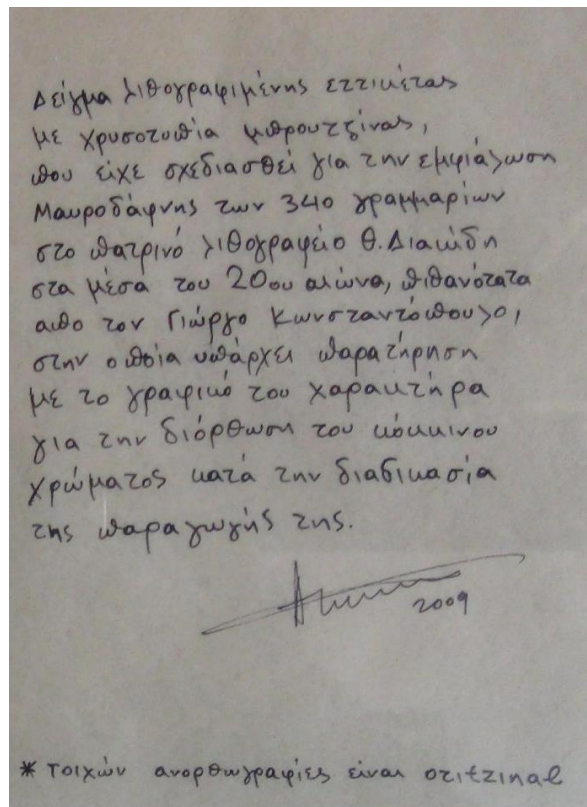 Δείγμα λιθογραφιμένης εττικέτας
με χρυσοτυπία μπρουτζίνας,
που είχε σχεδιασθεί για την εμφιάλωση
Μαυροδάφνης των 340 γραμμαρίων
στο πατρινό λιθογραφείο Θ. Διακίδη
στα μέσα του 20ου αιώνα, πιθανότατα
απο τον Γιώργο Κωνσταντόπουλο,
στην οποία υπάρχει παρατήρηση
με το γραφικό του χαρακτήρα
για την διόρθωση του κόκκινου
χρώματος κατά την διαδικασία
της παραγωγής της.
2009
* τοιχών ανορθωγραφίες είναι οτιτzιnαl